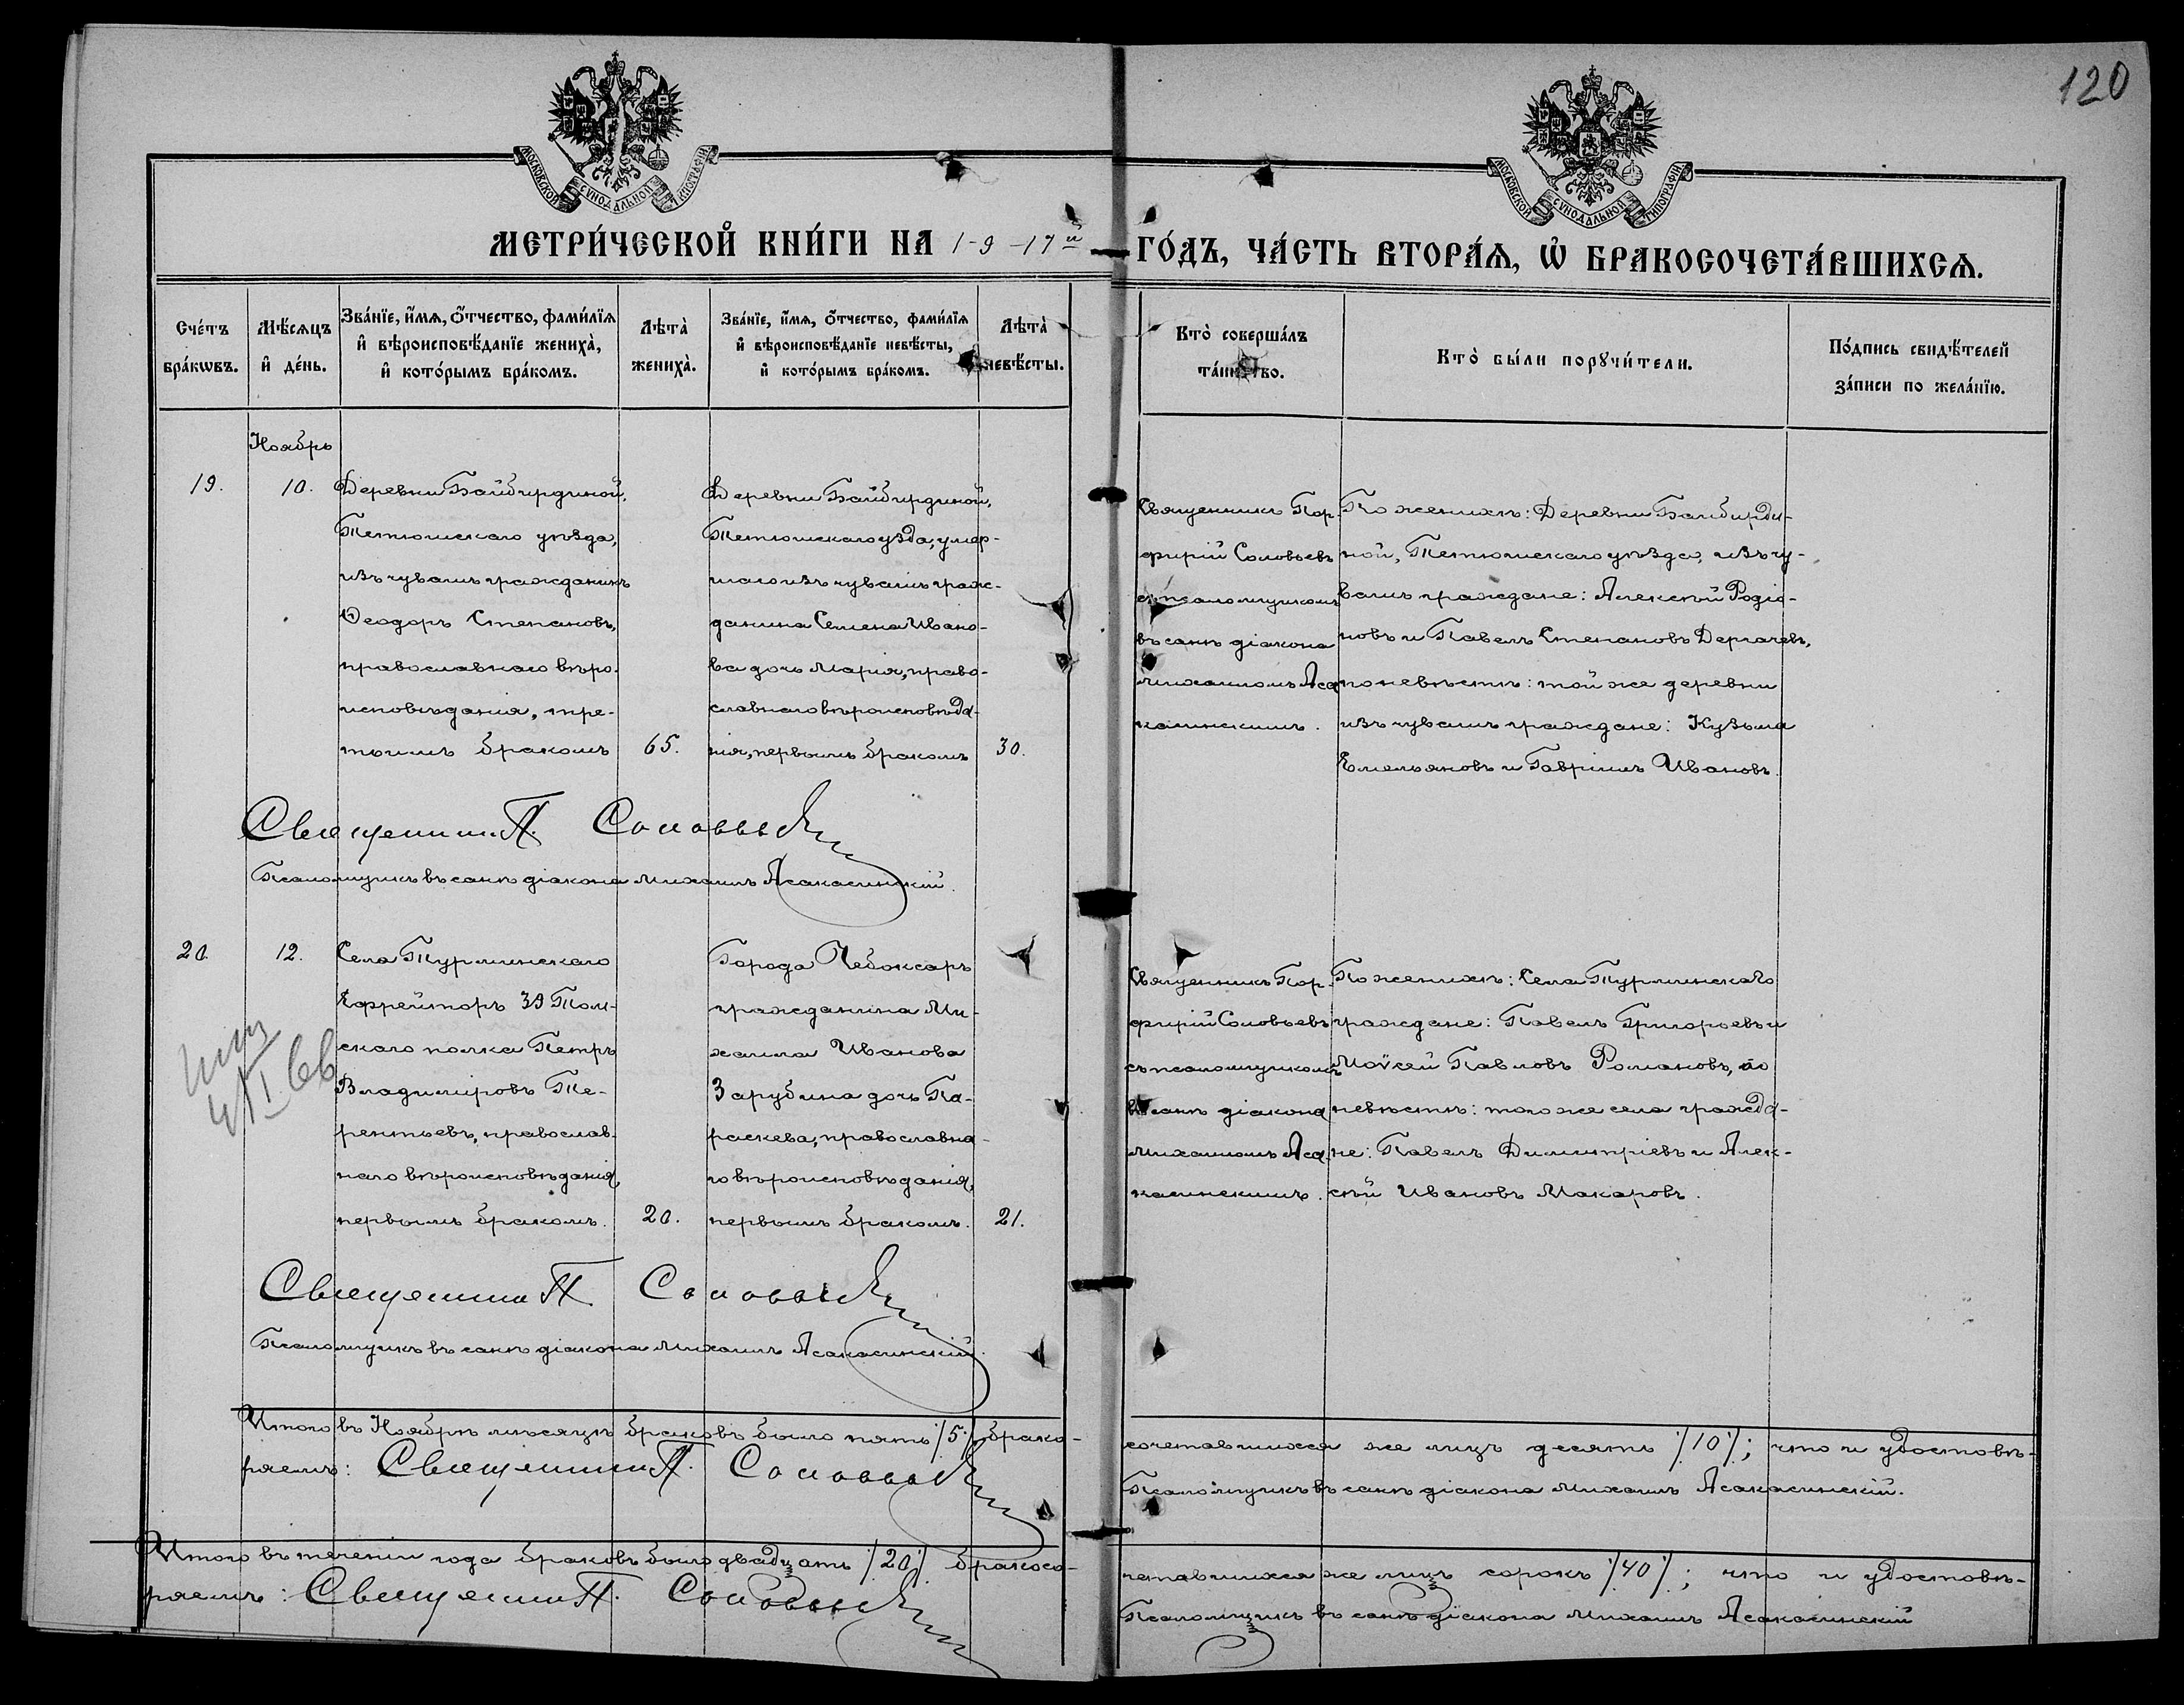 120
МОСКОВСКОЙ СѴНОДАЛЬНОЙ ТИПОГРАФІИ
МОСКОВСКОЙ СѴНОДАЛЬНОЙ ТИПОГРАФІИ
МЕТРИ́ЧЕСКОЙ КНИ́ГИ НА 1-9-17й ГО́ДЪ, ЧА́СТЬ ВТОРА́Ѧ, Ѡ҆ БРАКОСОЧЕТА́ВШИХСѦ.
Сче́тъ бра́кѡвъ.
Мѣ́сѧцъ и҆ де́нь.
Зва́нїе, и҆́мѧ, ѻ҆́тчество, фами́лїѧ
и҆ вѣроисповѣ́данїе жениха̀,
и҆ кото́рымъ бра́комъ.
Лѣта̀ жениха̀.
Зва́нїе, и҆́мѧ, ѻ҆́тчество, фами́лїѧ
и҆ вѣроисповѣ́данїе невѣ́сты,
и҆ кото́рымъ бра́комъ.
Лѣта̀ невѣ́сты.
Кто̀ соверша́лъ
та́инство.
Кто̀ бы́ли порꙋчи́тели.
По́дпись свидѣ́телей
за́писи по жела́нїю.
Ноябрь
19.
10.
Деревни Байбирдиной,
Тетюшскаго уѣзда,
изъ чувашъ гражданинъ
Ѳеодоръ Степановъ,
православнаго вѣро-
исповѣданія, тре-
тьимъ бракомъ
65.
Деревни Байбирдиной,
Тетюшскаго уѣзда, умер-
шаго изъ чувашъ граж-
данина Семена Ивано-
ва дочь Марія, право-
славнаго вѣроисповѣда-
нія, первымъ бракомъ
30.
Священникъ Пор-
фирій Соловьевъ
съ псаломщикомъ
въ санѣ діакона
Михаиломъ Аса-
касинскимъ.
По женихѣ: Деревни Байбирди-
ной, Тетюшскаго уѣзда, изъ чу-
вашъ граждане: Алексѣй Родіо-
новъ и Павелъ Степановъ Дергачевъ,
по невѣстѣ: той же деревни
изъ чувашъ граждане: Кузьма
Емельяновъ и Гавріилъ Ивановъ.
Священникъ П. Соловьевъ
Псаломщикъ въ санѣ діакона Михаилъ Асакасинскій.
20.
12.
Села Турминскаго
Ефрейторъ 39 Том-
скаго полка Петръ
Владиміровъ Те-
рентьевъ, православ-
наго вѣроисповѣданія,
первымъ бракомъ.
20.
Города Чебоксаръ
гражданина Ми-
хаила Иванова
Зарубина дочь Па-
раскева, православна-
го вѣроисповѣданія,
первымъ бракомъ.
21.
Священникъ Пор-
фирій Соловьевъ
съ псаломщикомъ
въ санѣ діакона
Михаиломъ Аса-
касинскимъ.
По женихѣ: Села Турминскаго
граждане: Павелъ Григорьевъ и
Моѵсей Павловъ Романовъ, по
невѣстѣ: того же села гражда-
не: Павелъ Димитріевъ и Алек-
сѣй Ивановъ Макаровъ.
Священникъ П. Соловьевъ
Псаломщикъ въ санѣ діакона Михаилъ Асакасинскій.
Итого въ Ноябрѣ мѣсяцѣ браковъ было пять /5/, брако-
сочетавшихся же лицъ десять /10/; что и удостовѣ-
ряемъ: Священникъ П. Соловьевъ
Псаломщикъ въ санѣ діакона Михаилъ Асакасинскій.
Итого въ теченіи года браковъ было двадцать /20/ бракосо-
четавшихся же лицъ сорокъ /40/; что и удостовѣ-
ряемъ: Священникъ П. Соловьевъ
Псаломщикъ въ санѣ діакона Михаилъ Асакасинскій